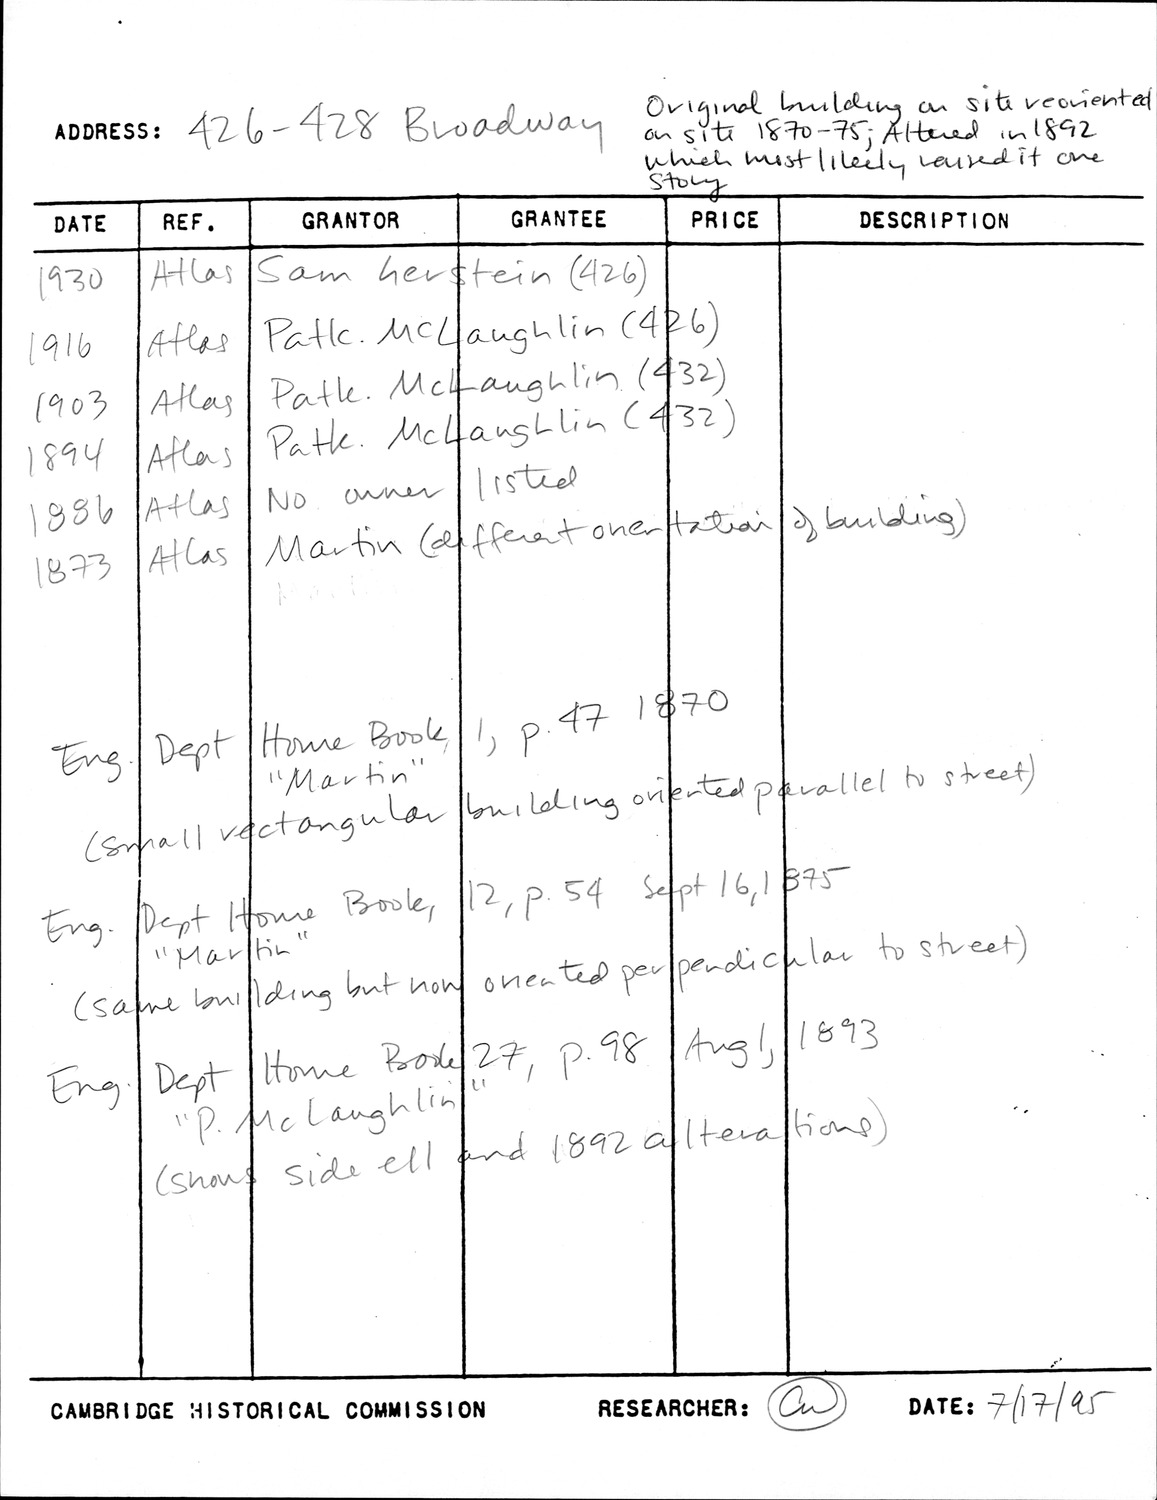 Original building on site reoriented
on site 1870-75; Altered in 1892
which most likely raised it one
story
ADDRESS: 426-428 Broadway
DATE REF. GRANTOR GRANTEE PRICE DESCRIPTION
1930 Atlas Sam herstein (426)
1916 Atlas Patk. McLaughlin (426)
1903 Atlas Patk. McLaughlin (432)
1894 Atlas Patk. McLaughlin (432)
1886 Atlas No owner listed
1873 Atlas Martin (different orientation of building)
Eng. Dept Home Book, 1, p. 47 1870
"Martin"
(small rectangular building oriented parallel to street)
Eng. Dept Home Book, 12, p. 54 Sept 16, 1875
"Martin"
(same building but now oriented perpendicular to street)
Eng. Dept Home Book 27, p. 98 Aug 1, 1893
"P. McLaughlin"
(shows side ell and 1892 alterations)
CAMBRIDGE HISTORICAL COMMISSION RESEARCHER: CW DATE: 7/17/95